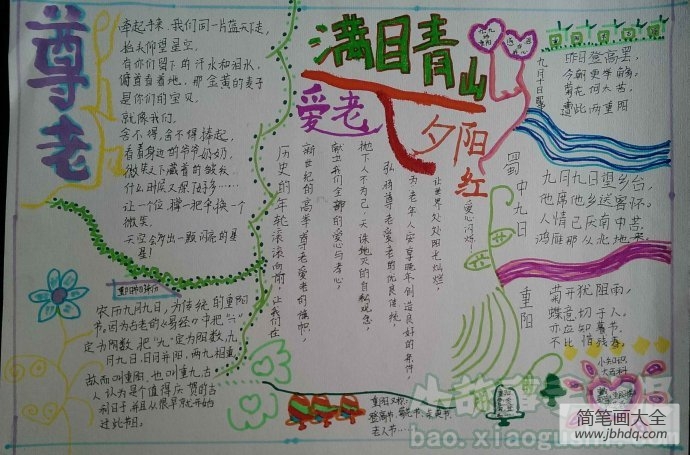 尊老
牵起手来,我们同一片蓝天下走,
抬头仰望星空,
有你们留下的汗水和泪水,
俯首看着地,那金黄的麦子
是你们的宝贝,
就像我们,
舍不得,舍不得捧起,
看着身边的爷爷奶奶,
微笑之下藏着的皱纹,
什么时候又深了好多……
让一个位,撑一把伞,换一个
微笑,
天空会多出一颗闪亮的星
星!
满目青山
爱老
夕阳红
让世界处处阳光灿烂,
为老年人安享晚年创造良好的条件
弘扬尊老爱老的优良传统,
抛下人不为己,天诛地灭的自私观念,
献出我们全部的爱心与孝心,
新世纪的高举尊老爱老的旗帜,
历史的年轮滚滚向前,让我们在
农历九月九日,为传统的重阳
节,因为古老的《易经》中把“六”
定为阴数,把“九”定为阳数,九
月九日,日月并阳,两九相重,
故而叫重阳,也叫重九,古
人认为是个值得庆贺的吉
利日子,并且从很早就开始
过此节日。
九月十日即事
昨日登高罢,
今朝更举觞,
菊花何太苦,
遭此两重阳
蜀中九日
九月九日望乡台,
他席他乡送客杯。
人情已厌南中苦,
鸿雁那从北地来。
重阳
菊开犹阻雨,
蝶意切于人,
亦应知暮节,
不比惜残春。
小知识
大百科
重阳又称:
登高节、菊花节、茱萸节、
老人节……
简笔画大全
www.jbhdq.com